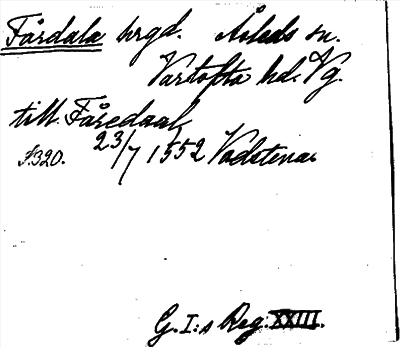 Fårdala hrgd. Åsleds sn.
Vartofta hd. Vg.
till Fåredaal
S.320. 23/7 1552 Vadstena
G.I:s Reg: XXIII.